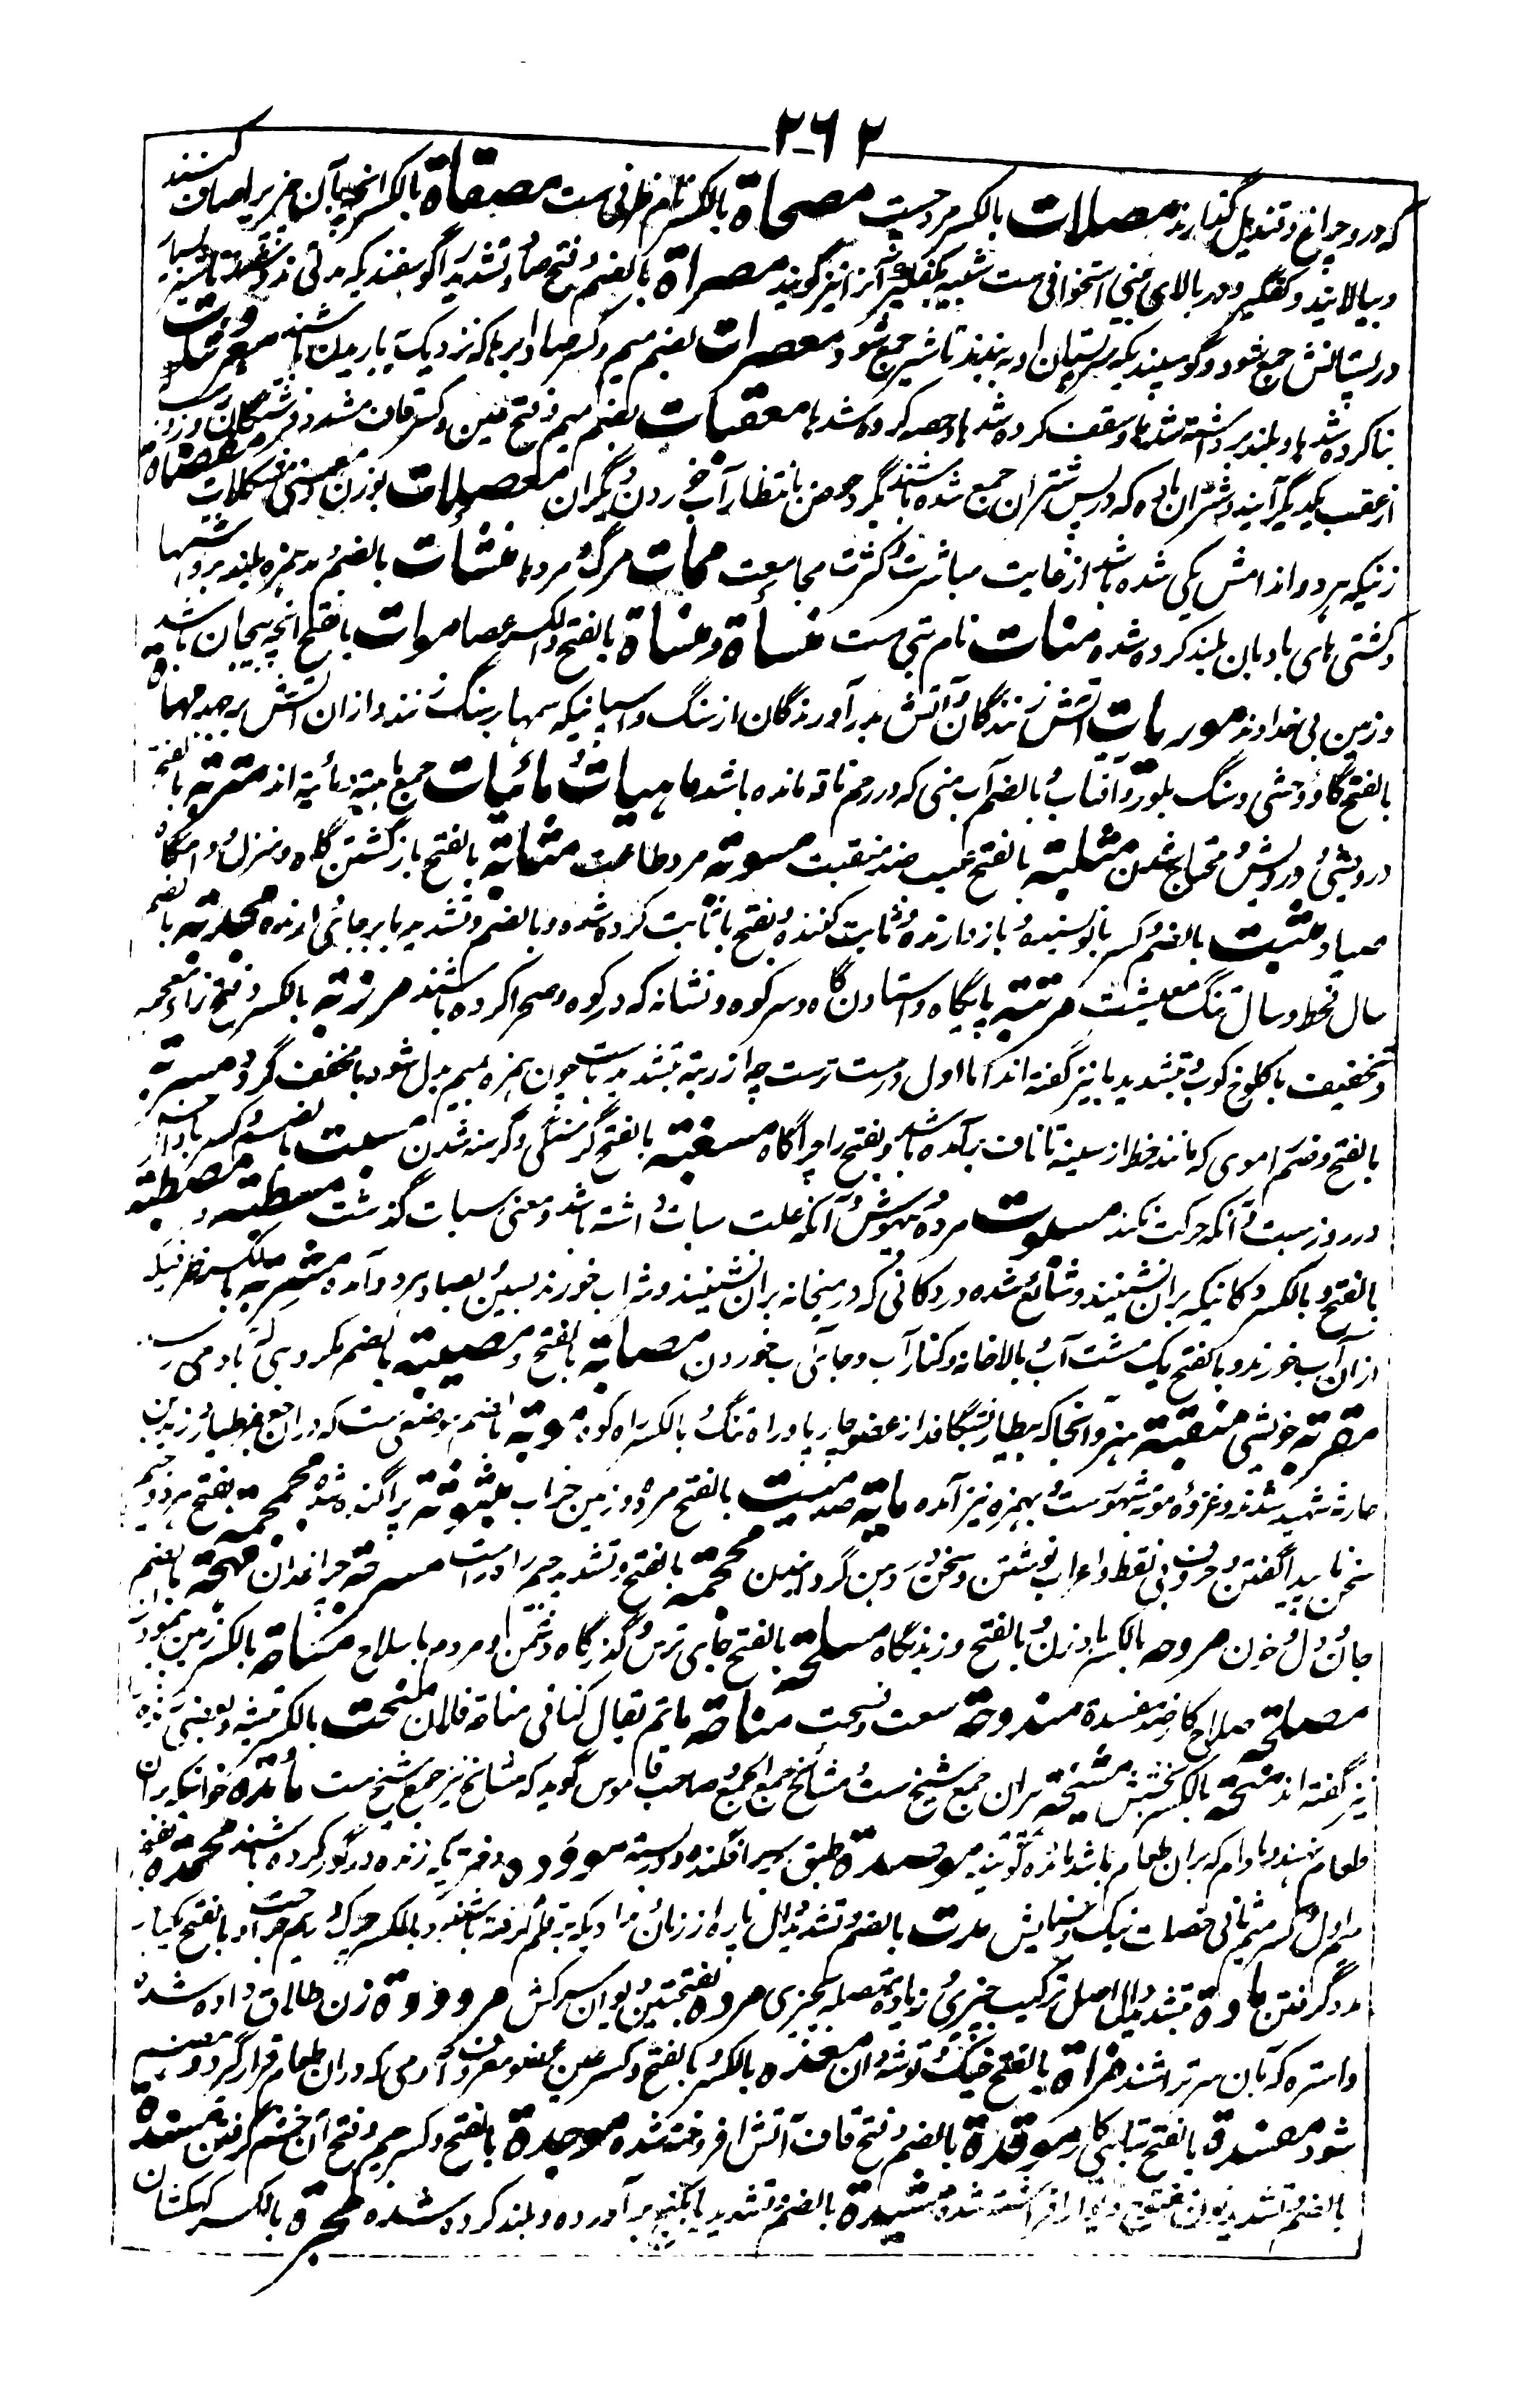 ۲۶۲
که درو چراغ و قندیل گذارند مصلات بالکسر مرد چست مصحاة بالکسر نام ظرفی ست مصفاة بالکسر انچه بآن چیز براصاف کنند
و بپالایند و کفگیر و در بالای بینی استخوانی ست شبیه بکفگیر آنرا نیز گویند مصراة بالضم و فتح صاد و تشدید را گوسفندیکه مدتی ندوشند تا شیر بسیار
در پستانش جمع شود و گوسپندیکه سرپستان او به بندند تا شیر جمع شود معصرات بضم میم و کسر صاد ابرها که نزدیک باریدن باشند معروشات
بنا کرده شدها و بلند برداشته شدها و سقف کرده شدها و حصه کرده شدها معقبات بضم میم و فتح عین و کسر قاف مشدد فرشتگان روز و شب که
از عقب یکدیگر آیند و شتران ماده که در پس شتران جمع شده باشند بگرد حوض بانتظار آب خوردن دیگران معضلات بوزن و معنی مشکلات مفضاة
زنیکه هر دو اندامش یکی شده باشد از غایت مباشرت و کثرت مجامعت ممات مرگ و مردها منشآت بالضم و مد همزه بلند برداشتها
و کشتی های بادبان بلند کرده شده منات نام بتی ست منساة و منساة بالفتح و الکسر عصا موات بالفتح انچه بیجان باشد
و زمین بی خداوند موریات آتش زنندگان و آتش بدر آورندگان از سنگ و اسپانیکه سمها بر سنگ زنند و ازان آتش برجهد مهاة
بالفتح گاو وحشی و سنگ بلور و آفتاب و بالضم آب منی که در رحم ناقه مانده باشد ماهیات و مائیات جمع ماهیة و مائیة اند متربة بالفتح
درویشی و درویش و محتاج شدن مثلبة بالفتح عیب ضد منقبت مسوته مرد طاعت مثابة بالفتح بازگشتن گاه و منزل و امکاه
صیاد مثبت بالضم و کسر با نویسنده و باز دارنده و ثابت کننده و بفتح با ثابت کرده شده و بالضم و تشدید با برجای ارنده مجدبة بالضم
سال قحط و سال تنگ معیشت مرتبة پایگاه و استادن گاه و سرکوه و نشانه که در کوه و صحرا کرده باشند مرزبة بالکسر و فتح زاء معجمه
و تخفیف با کلوخ کوب و تشدید با نیز گفته اند اما اول درست ترست چه ازربة بتشدید با ست چون همزه بمیم بدل شود با مخفف گردد مسربة
بالفتح و ضم را موی که مانند خط از سینه تا ناف برآمده باشد و بفتح را چراگاه مسغبة بالفتح گرسنگی و گرسنه شدن مسبت بالضم و کسر با داخل
در روز سبت و آنکه حرکت نکند مسبوت مرده و بیهوش و آنکه علت سبات داشته باشد و معنی سبات گذشت مسطبة و مصطبة
بالفتح و بالکسر دکانیکه بران نشینند و شائع شده در دکانی که در میخانه بران نشینند و شراب خورند بسین و بصاد هر دو آمده مشربة بالکسر ظرفیکه
ازان آب خورند و بالفتح یک مشت آب و بالاخانه و کنار آب و جای آب خوردن مصابة بالفتح و مصیبة بالضم مکروهی که بآدمی رسد
مقربة خویشی منقبة هنر و آنجا که بیطار بشگافد از عضو چارپا و راه تنگ و بالکسر راه کوه موتة بالضم موضعی ست که دران جعفر طیار و زید بن
حارثه شهید شدند و غزوهٔ موته مشهورست و بهمزه نیز آمده مایة صد میت بالفتح مرده و زمین خراب مبثوثة پراگنده شده مجمجة بفتح هر دو جیم
سخن ناپیدا گفتن و حروف بی نقط و اعراب نوشتن و سخن در دهن گردانیدن محجة بالفتح و تشدید جیم راه راست مسرجة چراغدان مهجة بالضم
جان و دل و خون مروحه بالکسر بادزن و بالفتح وزیدنگاه مسلحة بالفتح جای ترس و گذرگاه دشمن و مردم با سلاح
مصلحة صلاح کار ضد مفسدة مندوحة سعت و فسحت مناحة ماتم یقال کنا فی مناحة فلان منحت بالکسر تیشه و بعضی رنده را
نیز گفته اند منحة بالکسر بخشش مشیخة پیران جمع شیخ ست و مشائخ جمع الجمع و صاحب قاموس گوید که مشائخ نیز جمع شیخ ست مائدة خوانیکه بران
طعام نهند و مادام که بران طعام باشد مائده گویند موصدة طبق بسر افکنده و دربسته موؤده دختریکه زنده در گور کرده باشند محمدة بفتح
میم اول و کسر میم ثانی خصلت نیک و ستایش مدت بالضم و تشدید دال پاره از زمان و مدادیکه بقلم گرفته باشند و بالکسر چرک و ریم جراحت و بالفتح یکبار
مدد گرفتن مادة بتشدید دال اصل ترکیب چیزی و زیاده متصله بچیزی مرده بفتحتین دیوان سرکش مردودة زن طلاق داده شده
و استره که بآن سر تراشند مزادة بالفتح خیک و توشه دان معده بالکسر و بالفتح و کسر عین عضو معروف آدمی که دران طعام قرار گیرد و هضم
شود مفسدة بالفتح تباهی کار موقدة بالضم و فتح قاف آتش افروخته شده موجدة بالفتح و کسر جیم و فتح آن خشم گرفتن مسندة
بالضم و تشدید نون مفتوح دیوار افراشته شده مشیدة بالضم و تشدید یا بگچ برآورده و بلند کرده شده مجرة بالکسر کهکشان